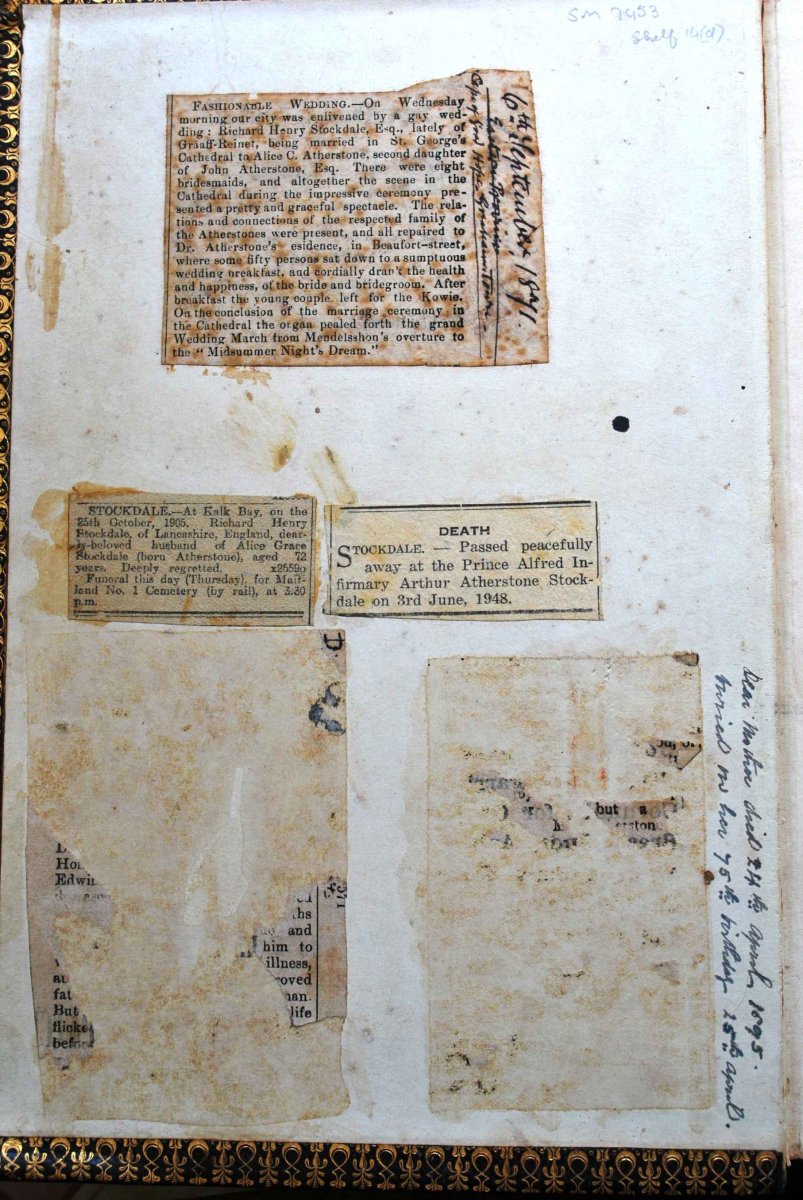 SM 7453
Shelf 14(d)
FASHIONABLE WEDDING.—On Wednesday
morning our city was enlivened by a gay wed-
ding: Richard Henry Stockdale, Esq., lately of
Graaff-Reinet, being married in St. George's
Cathedral to Alice C. Atherstone, second daughter
of John Atherstone, Esq. There were eight
bridesmaids, and altogether the scene in the
Cathedral during the impressive ceremony pre-
sented a pretty and graceful spectacle. The rela-
tions and connections of the respected family of
the Atherstones were present, and all repaired to
Dr. Atherstone's esidence, in Beaufort-street,
where some fifty persons sat down to a sumptuous
wedding breakfast, and cordially drank the health
and happiness, of the bride and bridegroom. After
breakfast the young couple left for the Kowie.
On the conclusion of the marriage ceremony in
the Cathedral the organ pealed forth the grand
Wedding March from Mendelsshon's overture to
the "Midsummer Night's Dream."
6th September, 1871.
Eastern Province
Cape of Good Hope Grahamstown
STOCKDALE.—At Kalk Bay, on the
25th October, 1905, Richard Henry
Stockdale, of Lancashire, England, dear-
ly-beloved husband of Alice Grace
Stockdale (born Atherstone), aged 72
years. Deeply regretted. x2659o
Funeral this day (Thursday), for Mait-
land No. 1 Cemetery (by rail), at 3.30
p.m.
DEATH
STOCKDALE. — Passed peacefully
away at the Prince Alfred In-
firmary Arthur Atherstone Stock-
dale on 3rd June, 1948.
D
Hon
Edwi
ths
and
him to
illness,
oved
au
fat
man.
But
life
flicke
befor
but a
erston
Dear Mother died 24th April 1895.
buried on her 75th birthday 25th April.